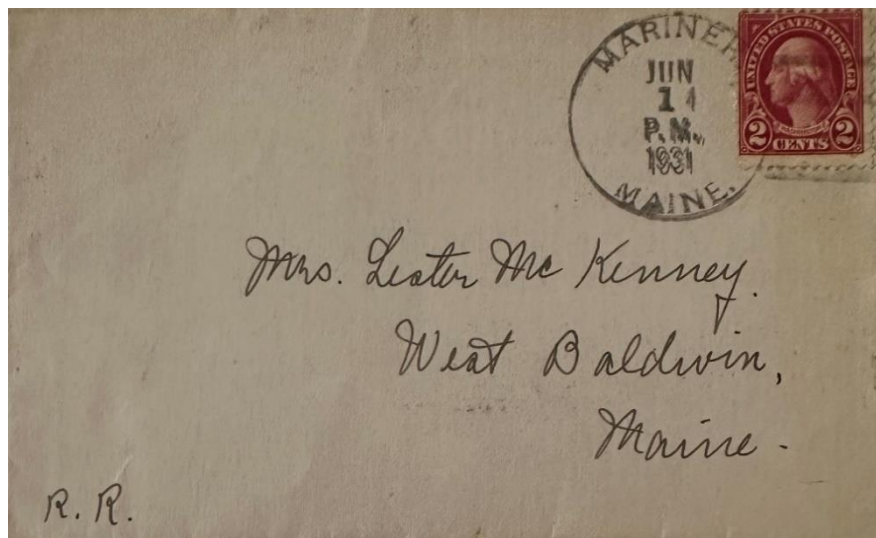 MARINER
JUN
14
P.M.
1931
MAINE.
UNITED STATES POSTAGE
WASHINGTON
2 CENTS 2
Mrs. Lester Mc Kenney.
West Baldwin,
Maine -
R. R.